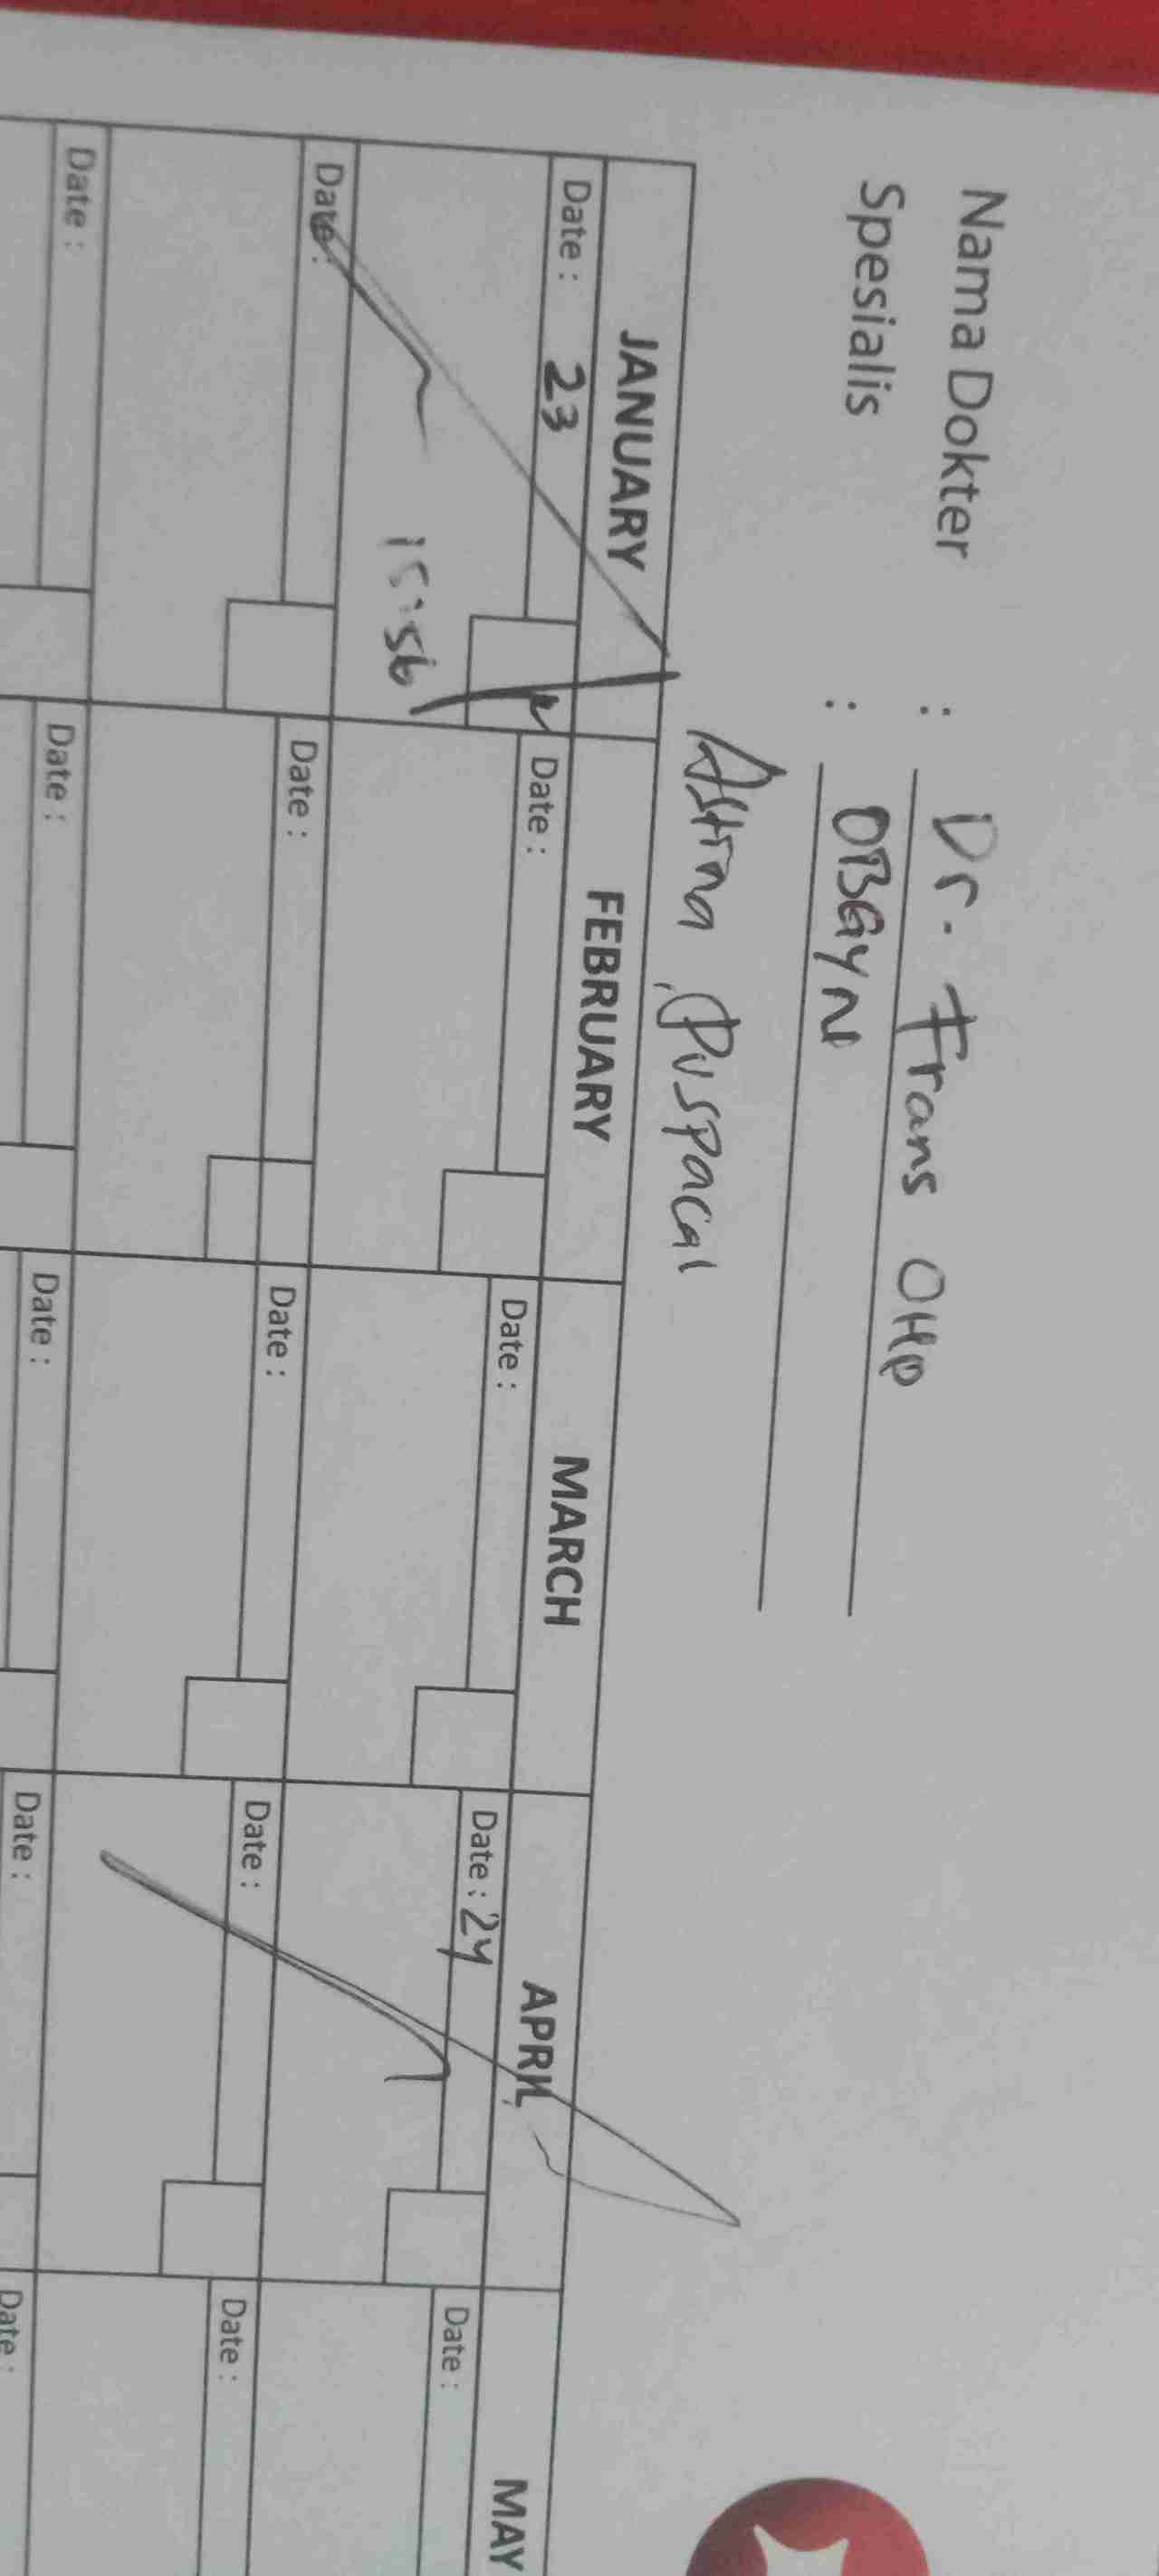 Nama Dokter : Dr. Frans OHP
Spesialis : OBGYN
Astrna Puspacal
JANUARY FEBRUARY MARCH APRIL MAY
Date : 23 Date : Date : Date : 24 Date :
15:56
Date : Date : Date : Date : Date :
Date : Date : Date : Date : Date :